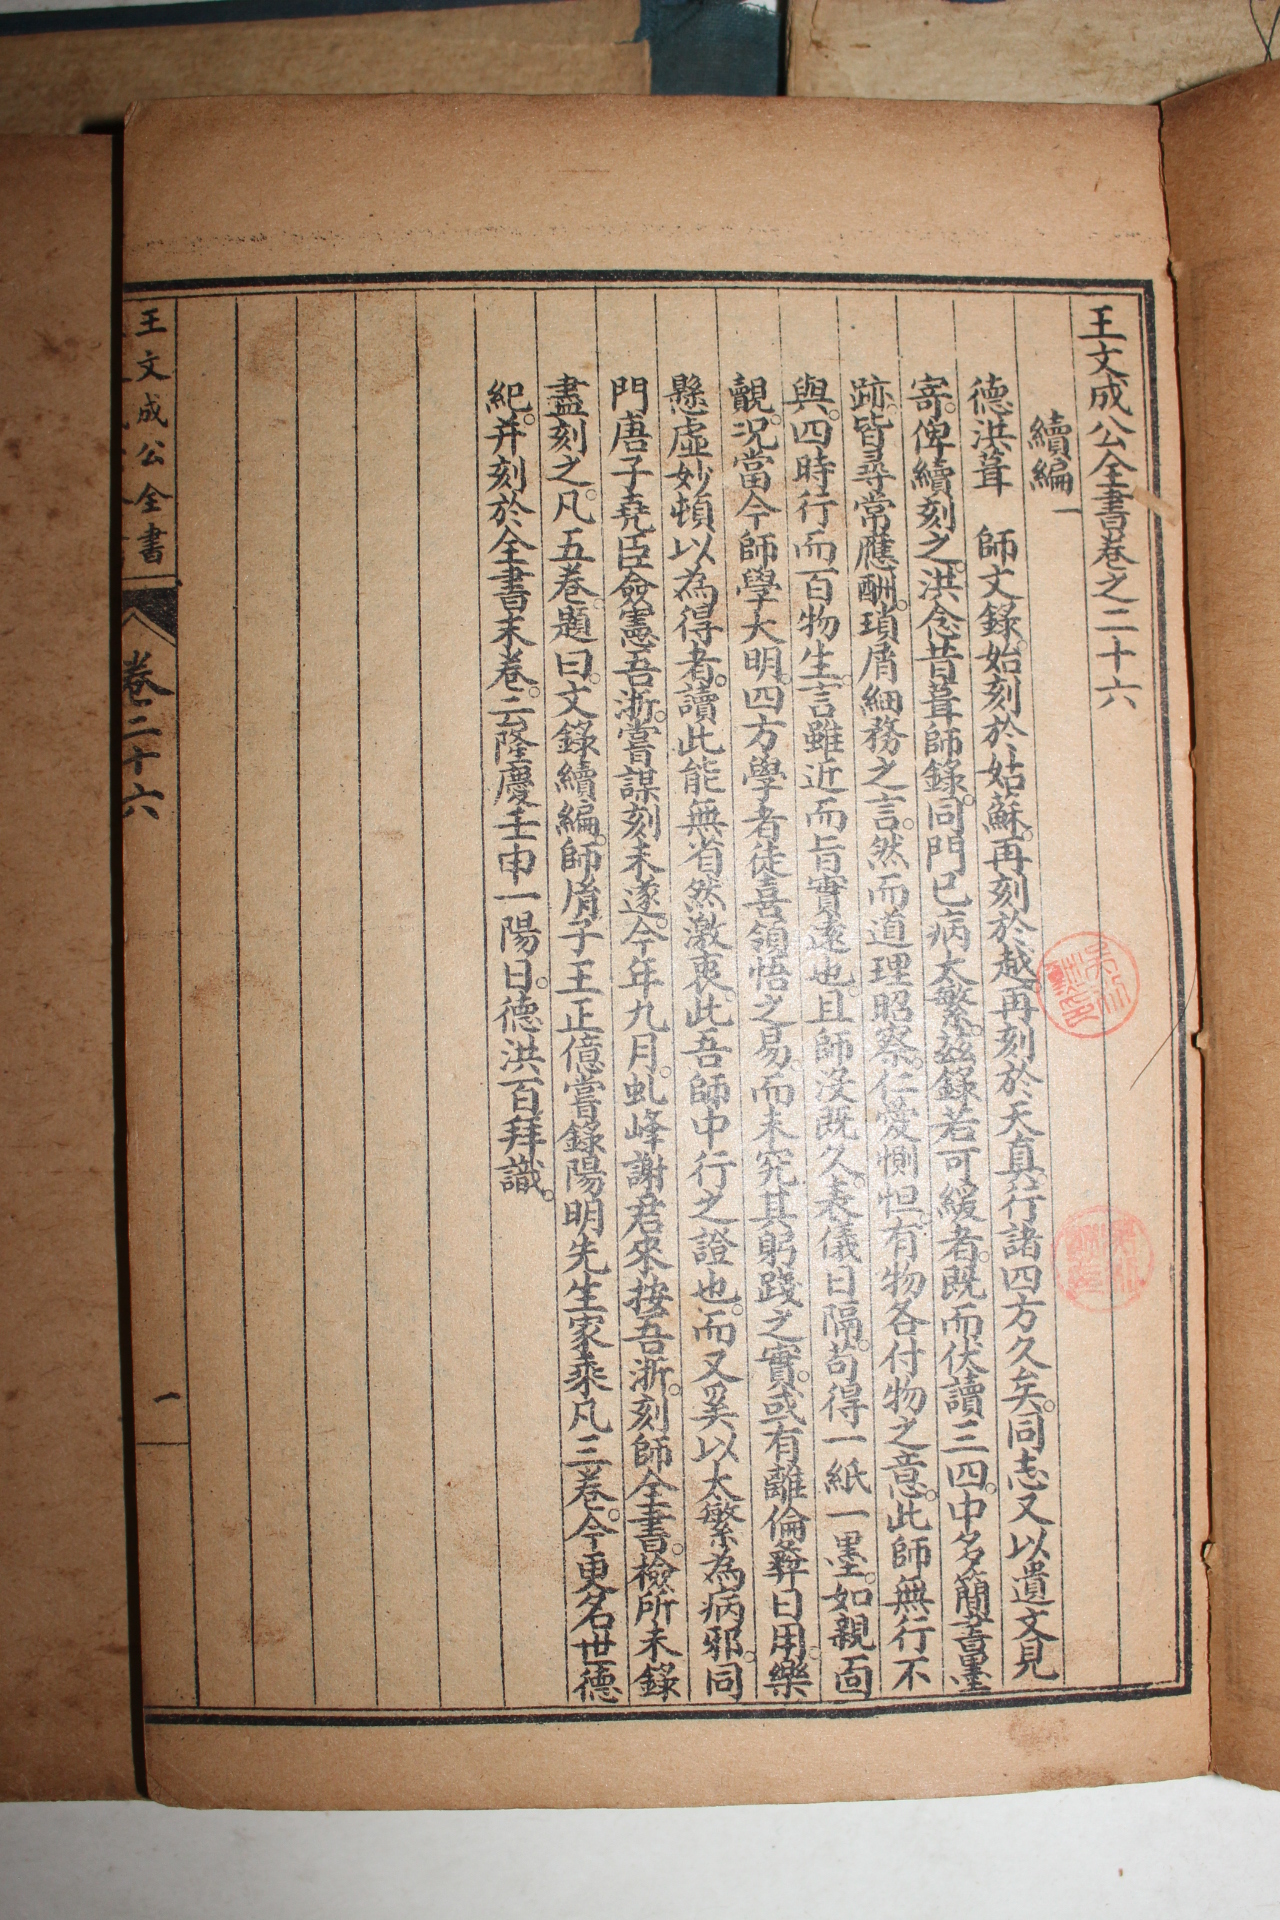 王文成公全書卷之二十六
續編一
德洪葺　師文錄。始刻於姑蘇。再刻於越。再刻於天真。行諸四方久矣。同志又以遺文見
寄。俾續刻之。洪念昔葺師錄。同門已病太繁。茲錄若可緩者。既而伏讀三四。中多簡書墨
跡。皆尋常應酬。瑣屑細務之言。然而道理昭察。仁愛惻怛。有物各付物之意。此師無行不
與。四時行而百物生。言雖近而旨實遠也。且師沒既久。表儀日隔。苟得一紙一墨。如親面
覿。況當今師學大明。四方學者徒喜領悟之易。而未究其躬踐之實。或有離倫彝日用。樂
懸虛妙頓以為得者。讀此能無省然激衷。此吾師中行之證也。而又奚以太繁為病邪。同
門唐子堯臣僉憲吾浙。嘗謀刻未遂。今年九月。虬峰謝君來按吾浙。刻師全書。檢所未錄
盡刻之。凡五卷。題曰。文錄續編。師胤子王正億嘗錄陽明先生家乘凡三卷。今更名世德
紀。并刻於全書末卷。云隆慶壬申一陽日。德洪百拜識。
王文成公全書
卷二十六
一